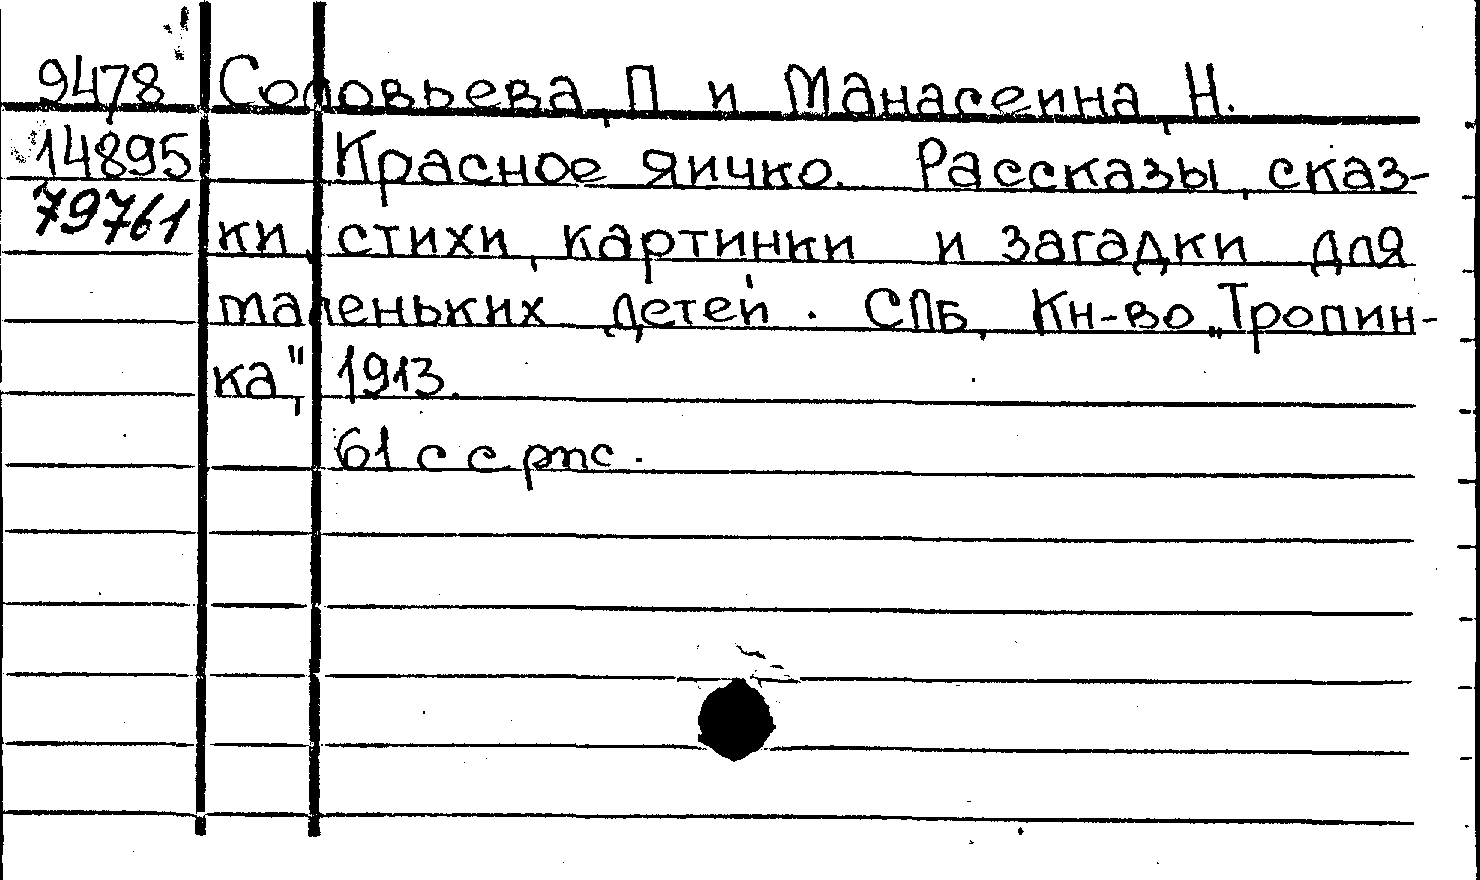 9478 Соловьева, П и Манасеина, Н.
14895 Красное яичко. Рассказы, сказ-
79761 ки, стихи, картинки и загадки для
маленьких детей. СПБ, Кн-во „Тропин-
ка", 1913.
61 с с рис.